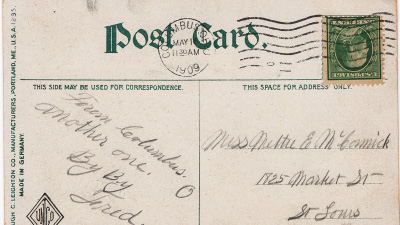 Post Card.
COLUMBUS, O
MAY 1
11 30 AM
THIS SIDE MAY BE USED FOR CORRESPONDENCE.
THIS SPACE FOR ADDRESS ONLY.
From Columbus. O
Another one.
By By
Fred.
Miss Nettie E. McCormick
1825 Market St
St Louis
HUGH C. LEIGHTON CO., MANUFACTURERS, PORTLAND, ME., U.S.A.
MADE IN GERMANY.